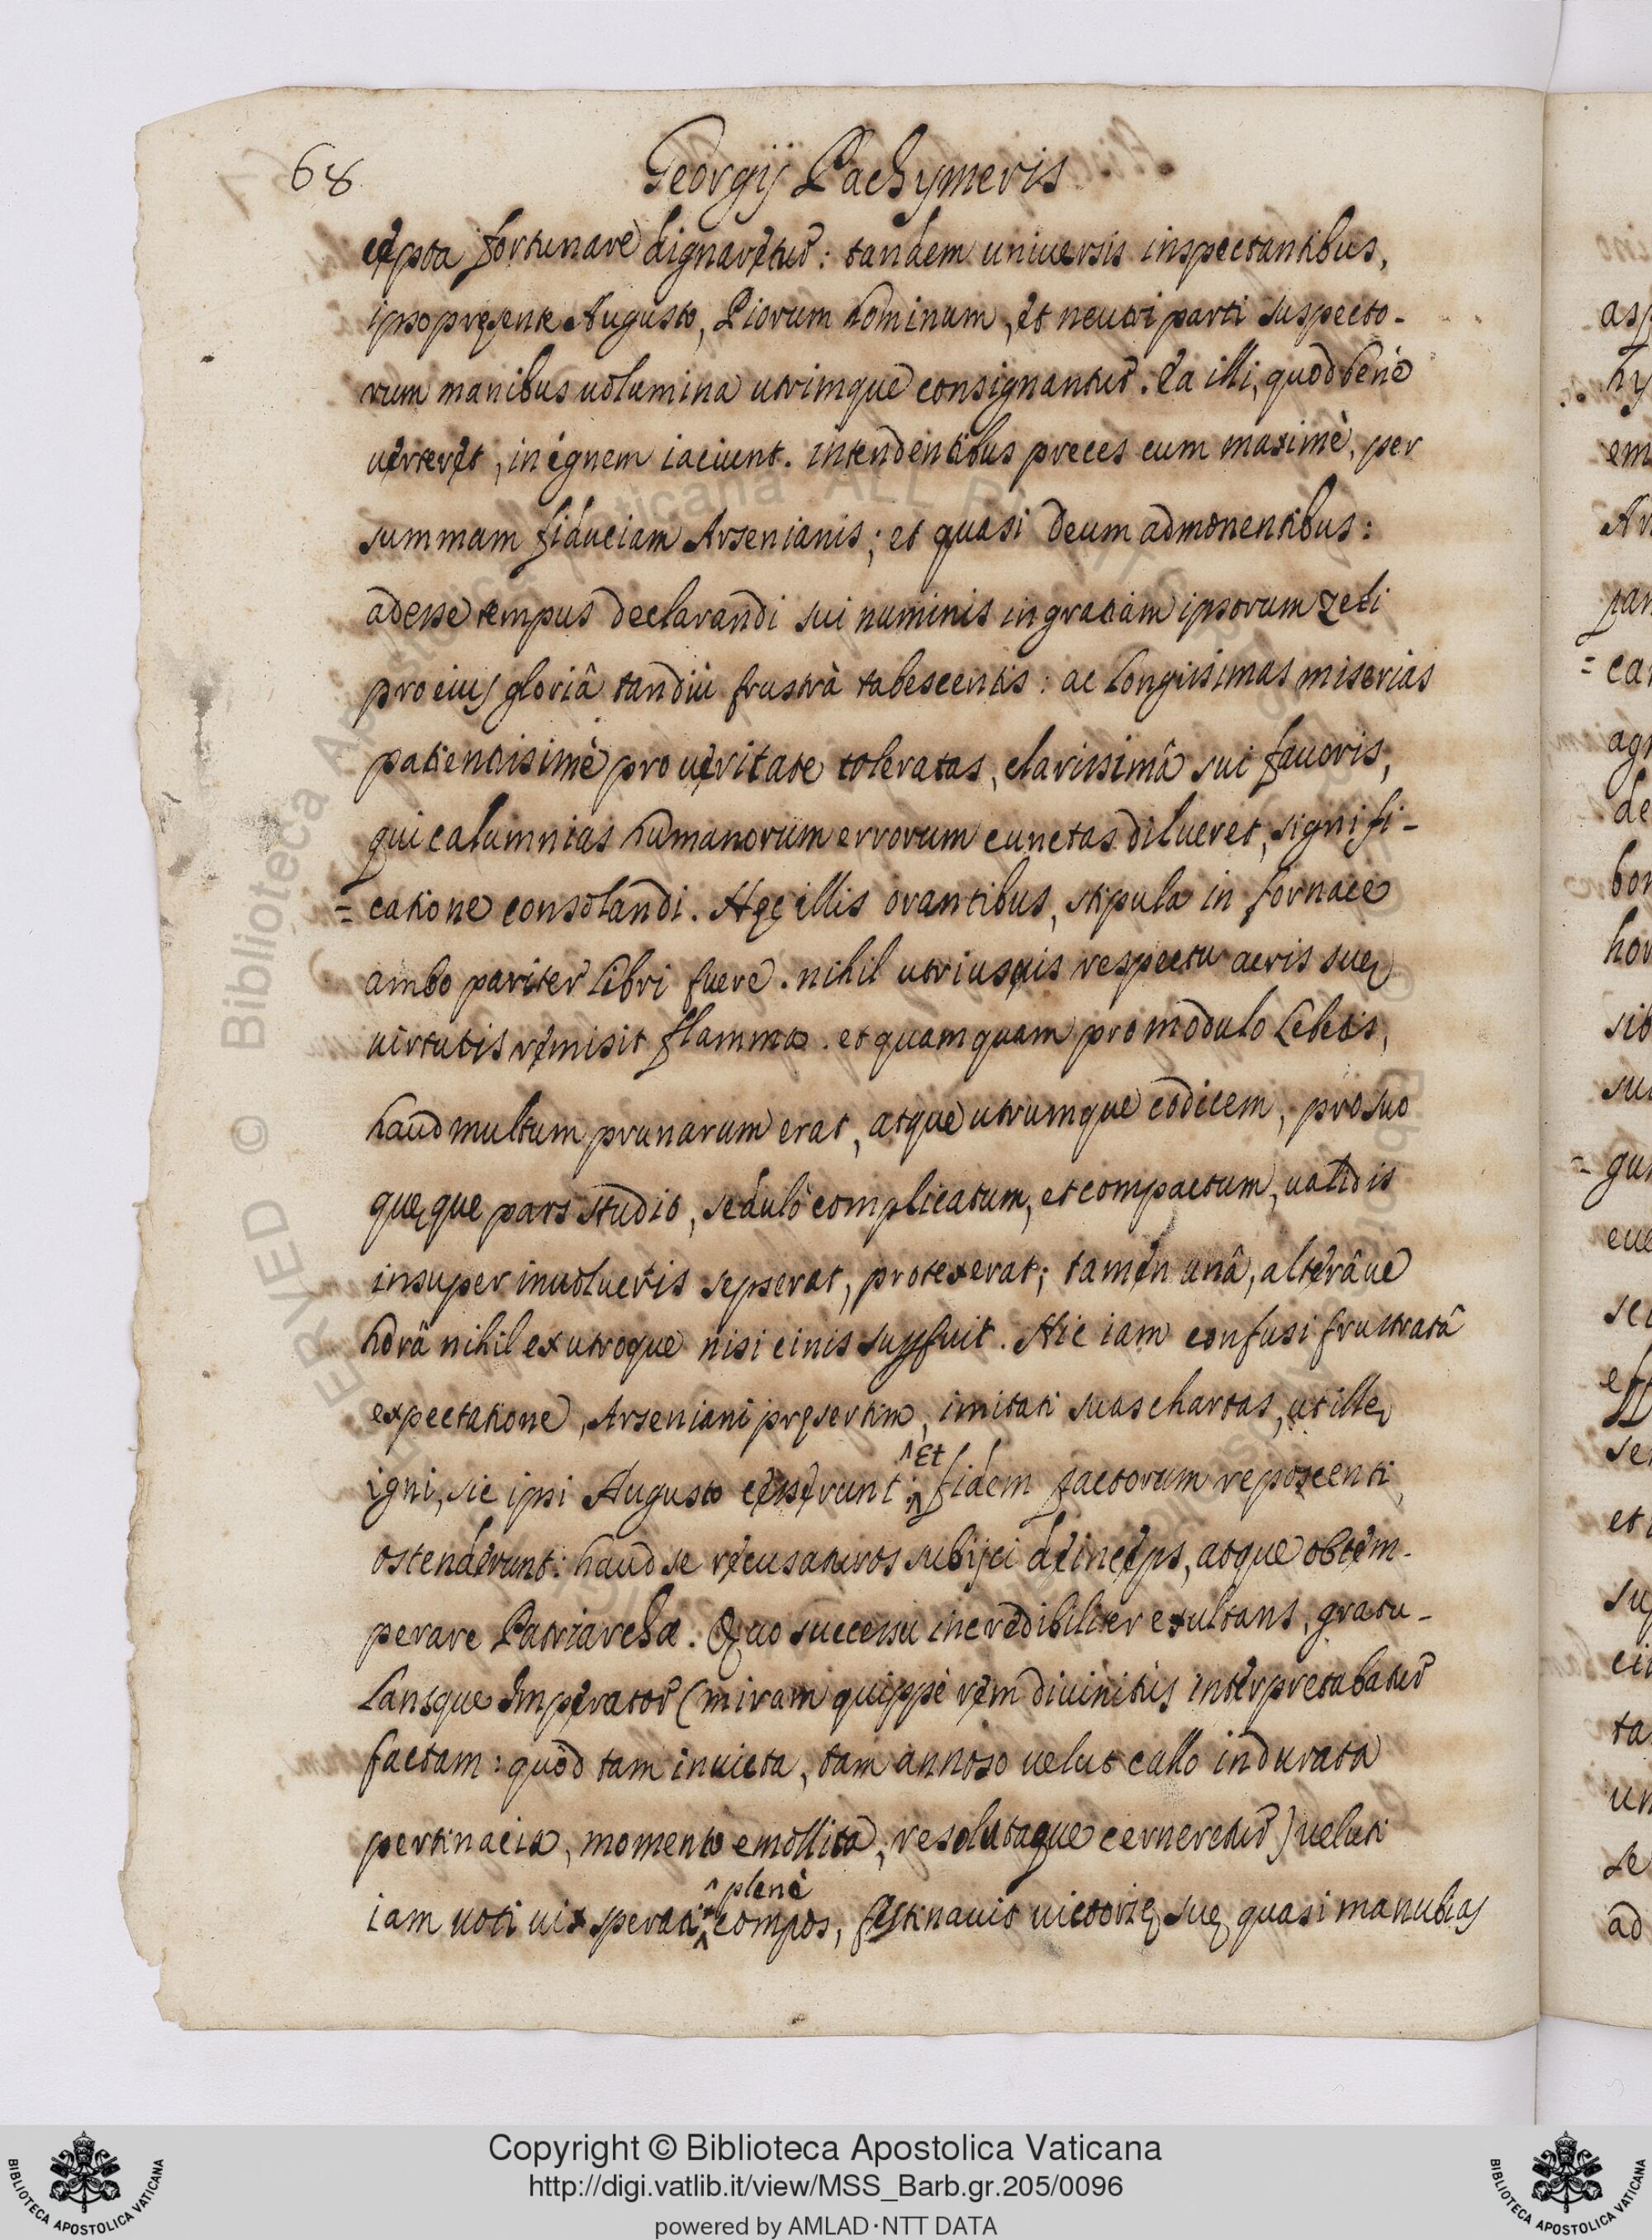 68
Georgij Pachymeris
cępta fortunare dignaretur: tandem uniuersis inspectantibus,
ipso pręsente Augusto, Piorum hominum, et neutri parti suspecto-
rum manibus uolumina utrimque consignantur. Ea illi, quod benè
uerteret, in ignem iaciunt. intendentibus preces cum maximè, per
summam fiduciam Arsenianis; et quasi Deum admonentibus:
adesse tempus declarandi sui numinis in gratiam ipsorum zeli
pro eius gloriâ tandiu frustrà tabescentis: ac longissimas miserias
patientissimè pro ueritate toleratas, clarissimâ sui fauoris,
qui calumnias humanorum errorum cunctas dilueret, signifi-
= catione consolandi. Hęc illis orantibus, stipula in fornace
ambo pariter libri fuere. nihil utriusuis respectu acris suę
uirtutis remisit flamma. et quamquam pro modulo Lebetis,
haud multum prunarum erat, atque utrumque codicem, pro suo
quęque pars studio, sedulò complicatum, et compactum, ualidis
insuper inuolucris sepserat, protexerat; tamen unâ, alterâue
horâ nihil ex utroque nisi cinis superfuit. Hic iam confusi frustratâ
expectatione, Arseniani pręsertim, imitati suas chartas, ut illę
igni, sic ipsi Augusto cesserunt: ^Et fidem pactorum reposcenti,
ostenderunt: haud se recusaturos subijci deinceps, atque obtem-
perare Patriarchæ. Quo successu incredibiliter exultans, gratu-
lansque Imperator (miram quippè rem diuinitùs interpretabatur
factam: quòd tam inuicta, tam annoso uelut callo indurata
pertinacia, momento emollita, resolutaque cerneretur) ueluti
iam uoti uix sperati ^plenè compos, festinauit uictorię suę quasi manubias
Copyright © Biblioteca Apostolica Vaticana
http://digi.vatlib.it/view/MSS_Barb.gr.205/0096
powered by AMLAD·NTT DATA